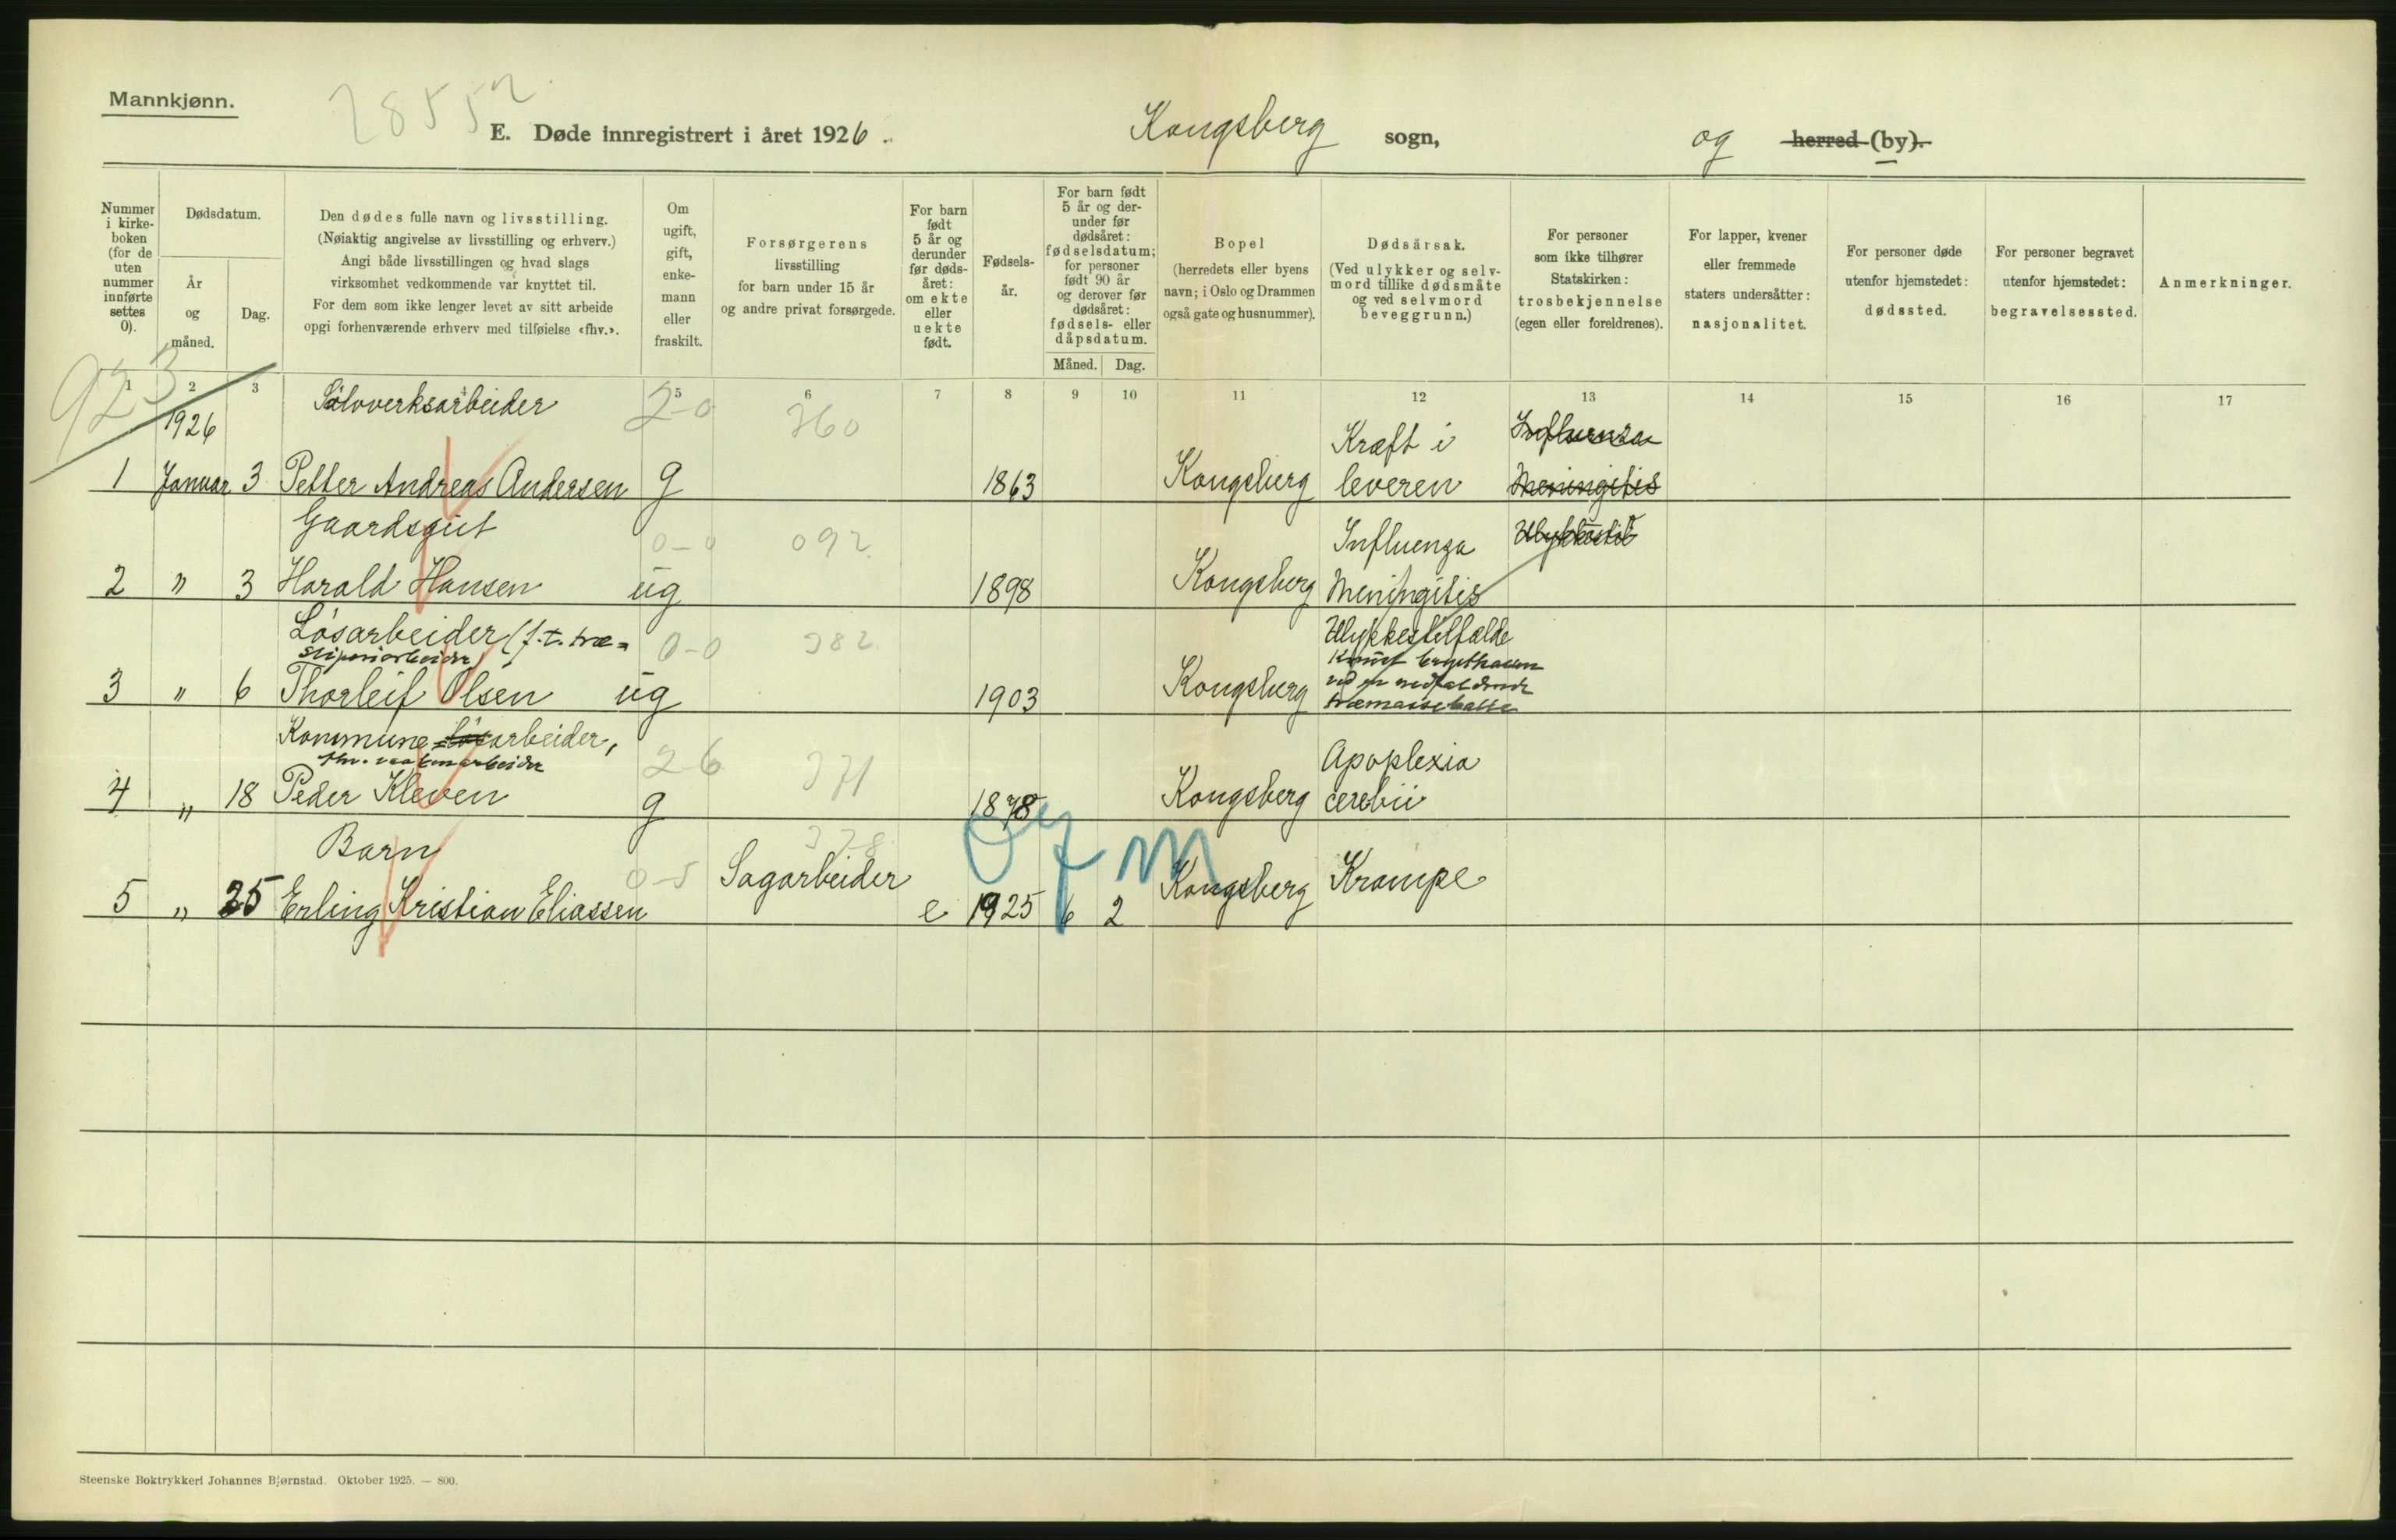 Mannkjønn.
28552.
E. Døde innregistrert i året 1926.
Kongsberg sogn, og herred (by).
Nummer i kirke-boken (for de uten nummer innførte settes 0).
Dødsdatum.
År og måned.
Dag.
Den dødes fulle navn og livsstilling.
(Nøiaktig angivelse av livsstilling og erhverv.)
Angi både livsstillingen og hvad slags
virksomhet vedkommende var knyttet til.
For dem som ikke lenger levet av sitt arbeide
opgi forhenværende erhverv med tilføielse «fhv.».
Om ugift, gift, enke-mann eller fraskilt.
Forsørgerens
livsstilling
for barn under 15 år
og andre privat forsørgede.
For barn født 5 år og derunder før døds-året: om ekte eller uekte født.
Fødsels-år.
For barn født 5 år og der-under før dødsåret: fødselsdatum; for personer født 90 år og derover før dødsåret: fødsels- eller dåpsdatum.
Måned.
Dag.
Bopel
(herredets eller byens
navn; i Oslo og Drammen
også gate og husnummer).
Dødsårsak.
(Ved ulykker og selv-
mord tillike dødsmåte
og ved selvmord
beveggrunn.)
For personer
som ikke tilhører
Statskirken:
trosbekjennelse
(egen eller foreldrenes).
For lapper, kvener
eller fremmede
staters undersåtter:
nasjonalitet.
For personer døde
utenfor hjemstedet:
dødssted.
For personer begravet
utenfor hjemstedet:
begravelsessted.
Anmerkninger.
1 2 3 4 5 6 7 8 9 10 11 12 13 14 15 16 17
923
1926
Sølvverksarbeider 2-0 360
Kræft i Influenza
1 Januar 3 Petter Andreas Andersen g 1863 Kongsberg leveren Meningitis
Gaardsgut 0-0 092. Influenza Ulykkestil
2 " 3 Harald Hansen ug 1898 Kongsberg Meningitis
Løsarbeider (f.t. træ- 0-0 382. Ulykkestilfælde
sliperiarbeider)
3 " 6 Thorleif Olsen ug 1903 Kongsberg
Kommune-løsarbeider, 26 371 Apoplexia
fhv.
4 " 18 Peder Kleven g 1878 Kongsberg cerebii
Barn 378
0-5 Sagarbeider
5 " 25 Erling Kristian Eliassen e 1925 6 2 Kongsberg Krampe
Steenske Boktrykkeri Johannes Bjørnstad. Oktober 1925. — 800.